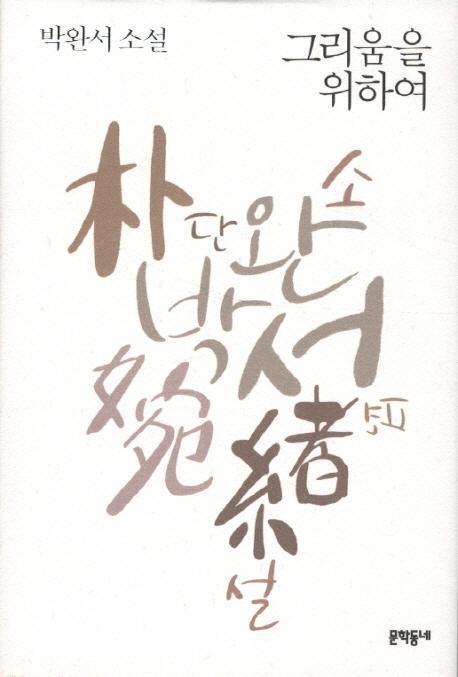 박완서 소설
그리움을
위하여
朴 단 완 소
박 서
婉 편
緖
설
문학동네